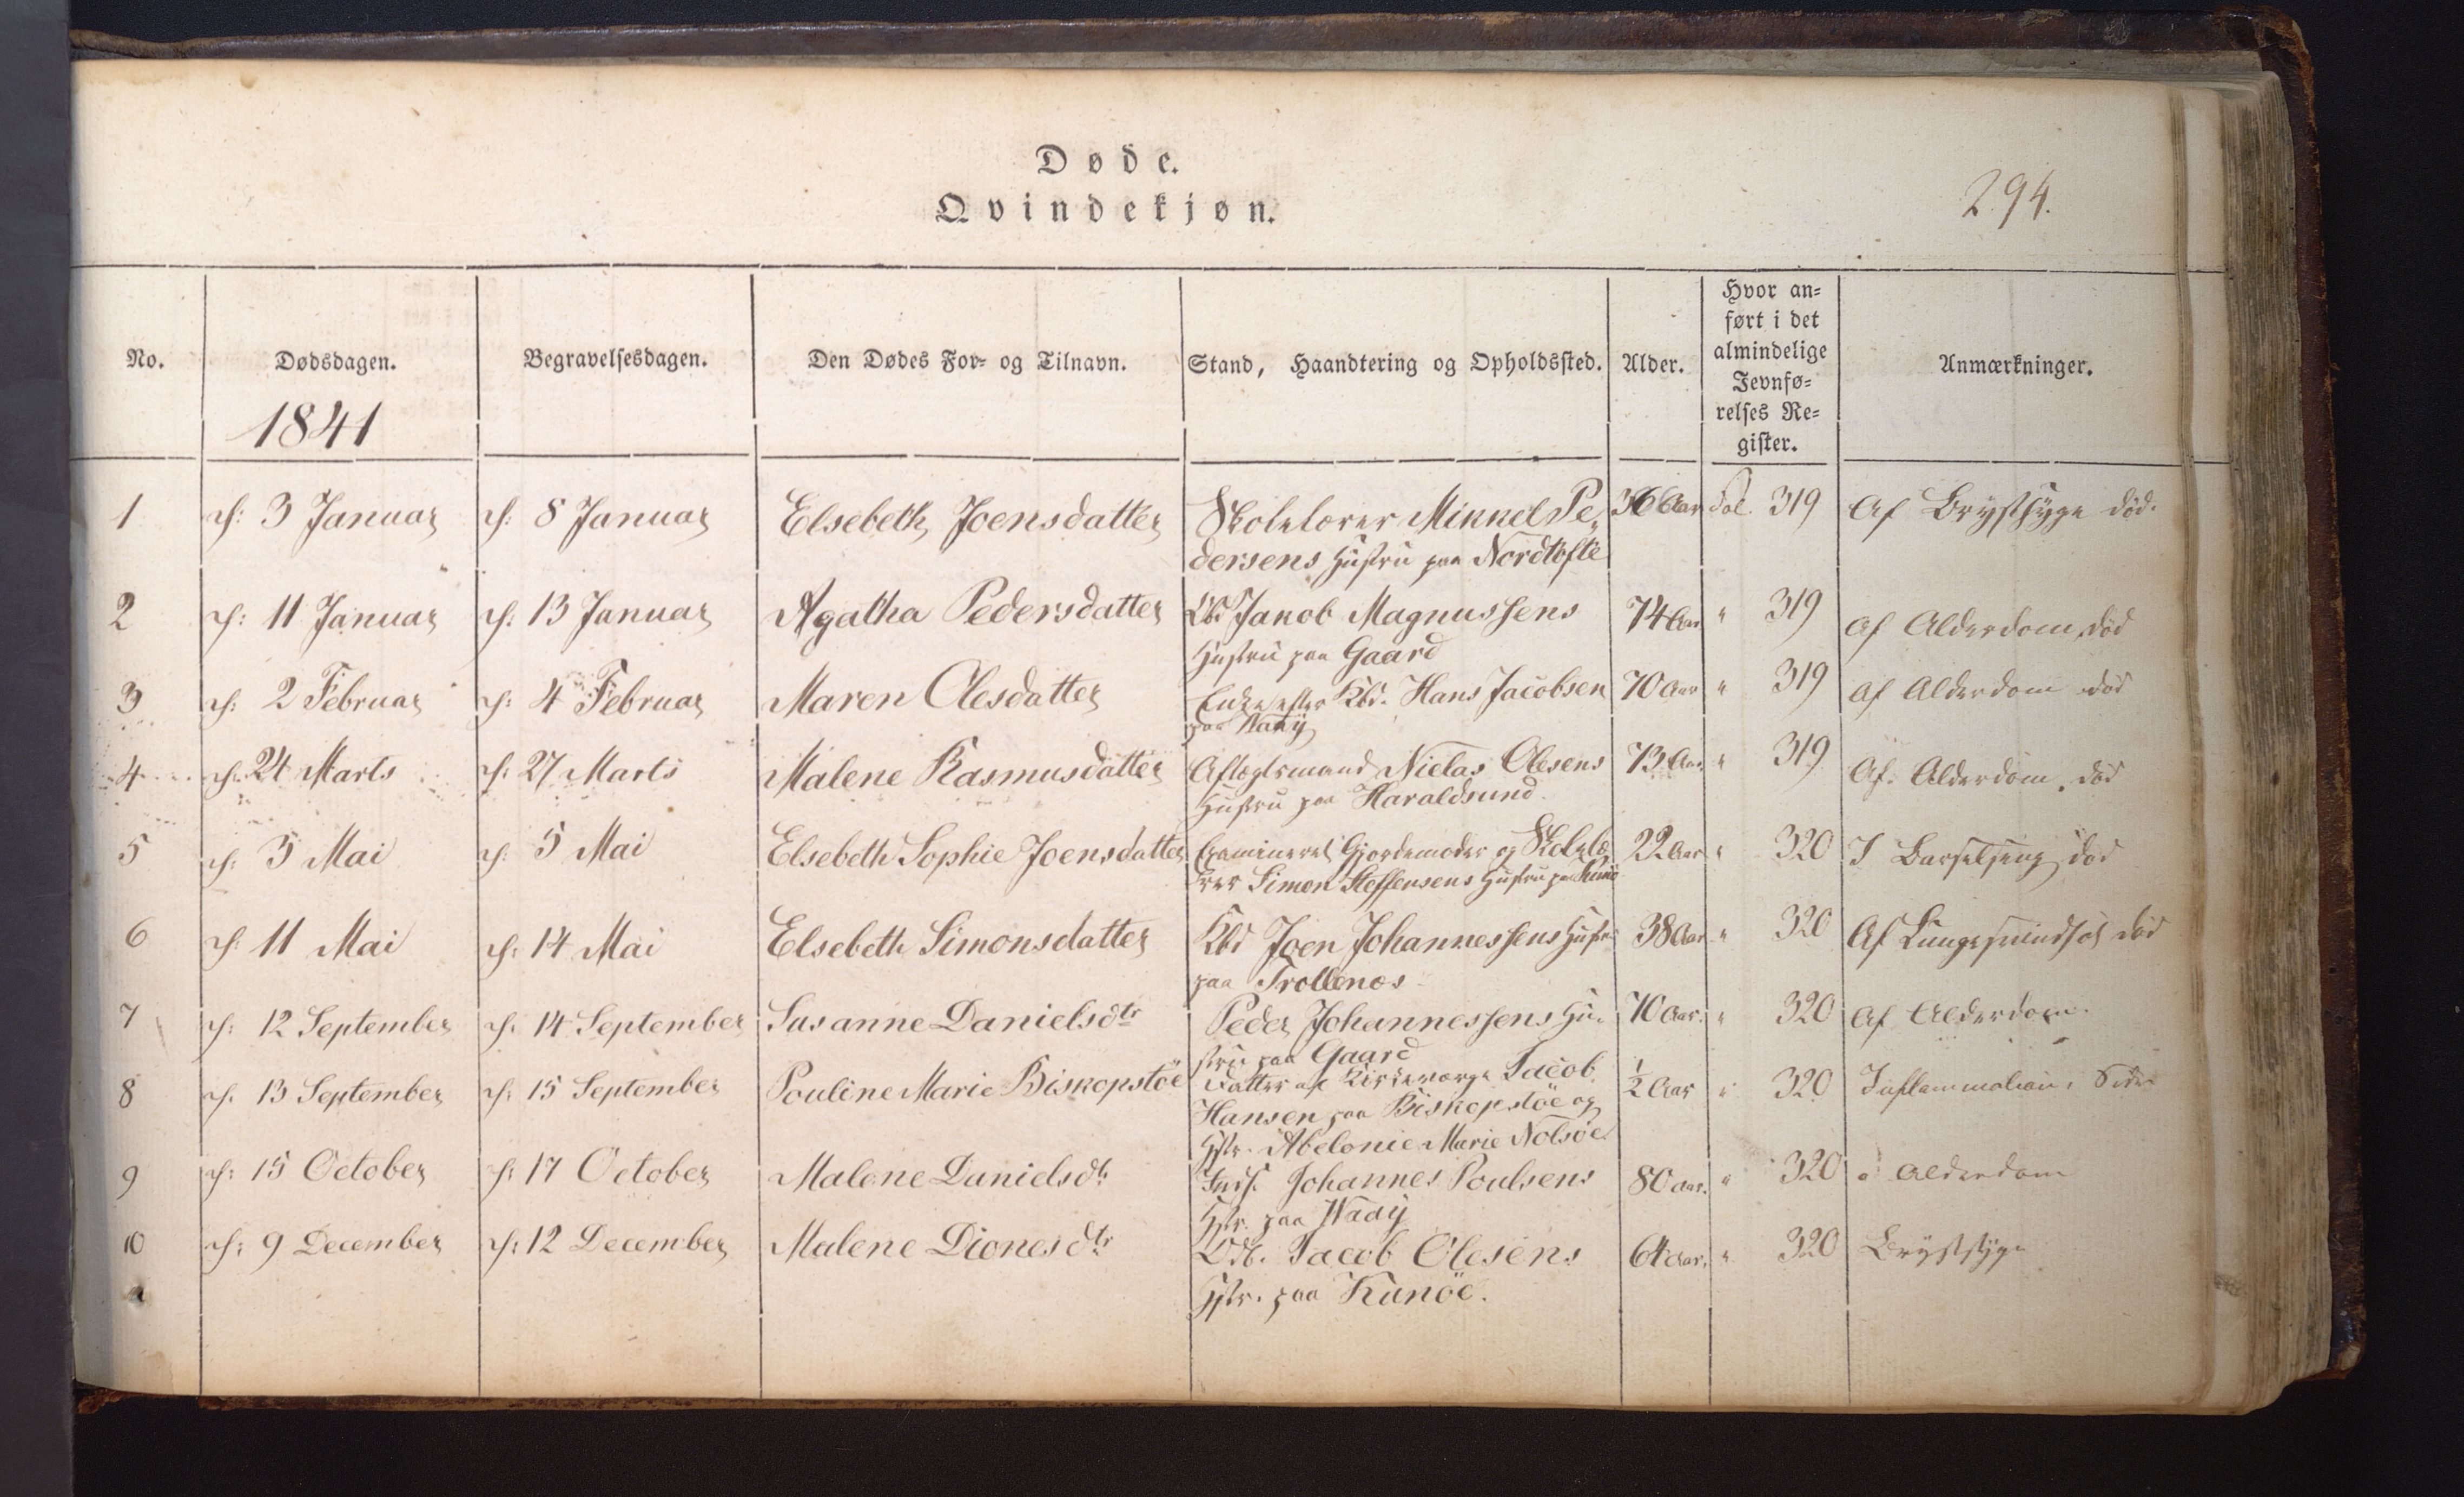 Døde.
Qvindekjøn.
294.
No.
Dødsdagen.
Begravelsesdagen.
Den Dødes For- og Tilnavn.
Stand, Haandtering og Opholdssted.
Alder.
Hvor an-
ført i det
almindelige
Jevnfø-
relses Re-
gister.
Anmærkninger.
1841
1 d: 3 Januar d: 8 Januar Elsebeth Joensdatter Skolelærer Mikkel Pe- 36 Aar Fol. 319 Af Brystsyge död.
dersens Hustru paa Nordtofte
2 d: 11 Januar d: 13 Januar Agatha Pedersdatter Kbd Jakob Magnussens 74 Aar " 319 af Alderdom död
Hustru paa Gaard
3 d: 2 Februar d: 4 Februar Maren Olesdatter Enke efter Kbd. Hans Jacobsen 70 Aar " 319 af Alderdom död
paa
4 d: 24 Marts d: 27 Marts Malene Rasmusdatter Aftægtsmand Nielas Olesens 73 Aar " 319 Af Alderdom död
Hustru paa Haraldsund.
5 d: 3 Mai d: 5 Mai Elsebeth Sophie Joensdatter Examineret Gjordemoder og Skolelæ 22 Aar " 320 I Barselseng död
rer Simon Steffensens Hustru paa
6 d: 11 Mai d: 14 Mai Elsebeth Simonsdatter Kbd Joen Johannessens Hustru 38 Aar " 320 Af död
paa Trollenæs
7 d: 12 September d: 14 September Susanne Danielsdtr Peder Johannessens Hu- 70 Aar. " 320 af Alderdom.
stru paa Gaard
8 d. 13 September d: 15 September Pouline Marie Biskopstöe Datter af Kirkeværge Jacob ½ Aar " 320 Inflammation i
Hansen paa Biskopstöe og
Hstr. Abelonie Marie Nolsöe.
9 d: 15 October d: 17 October Malene Danielsdtr Inds. Johannes Poulsens 80 Aar. " 320 " Alderdom
Hstr. paa Waaÿ
10 d: 9 December d: 12 December Malene Dionesdtr Odb. Jacob Olesens 64 Aar. " 320 Brystsyge
Hstr. paa Kunöe.